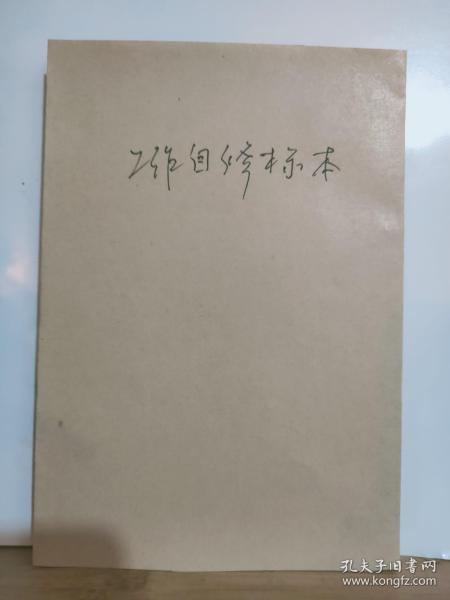 工作自修标本
孔夫子旧书网
www.kongfz.com